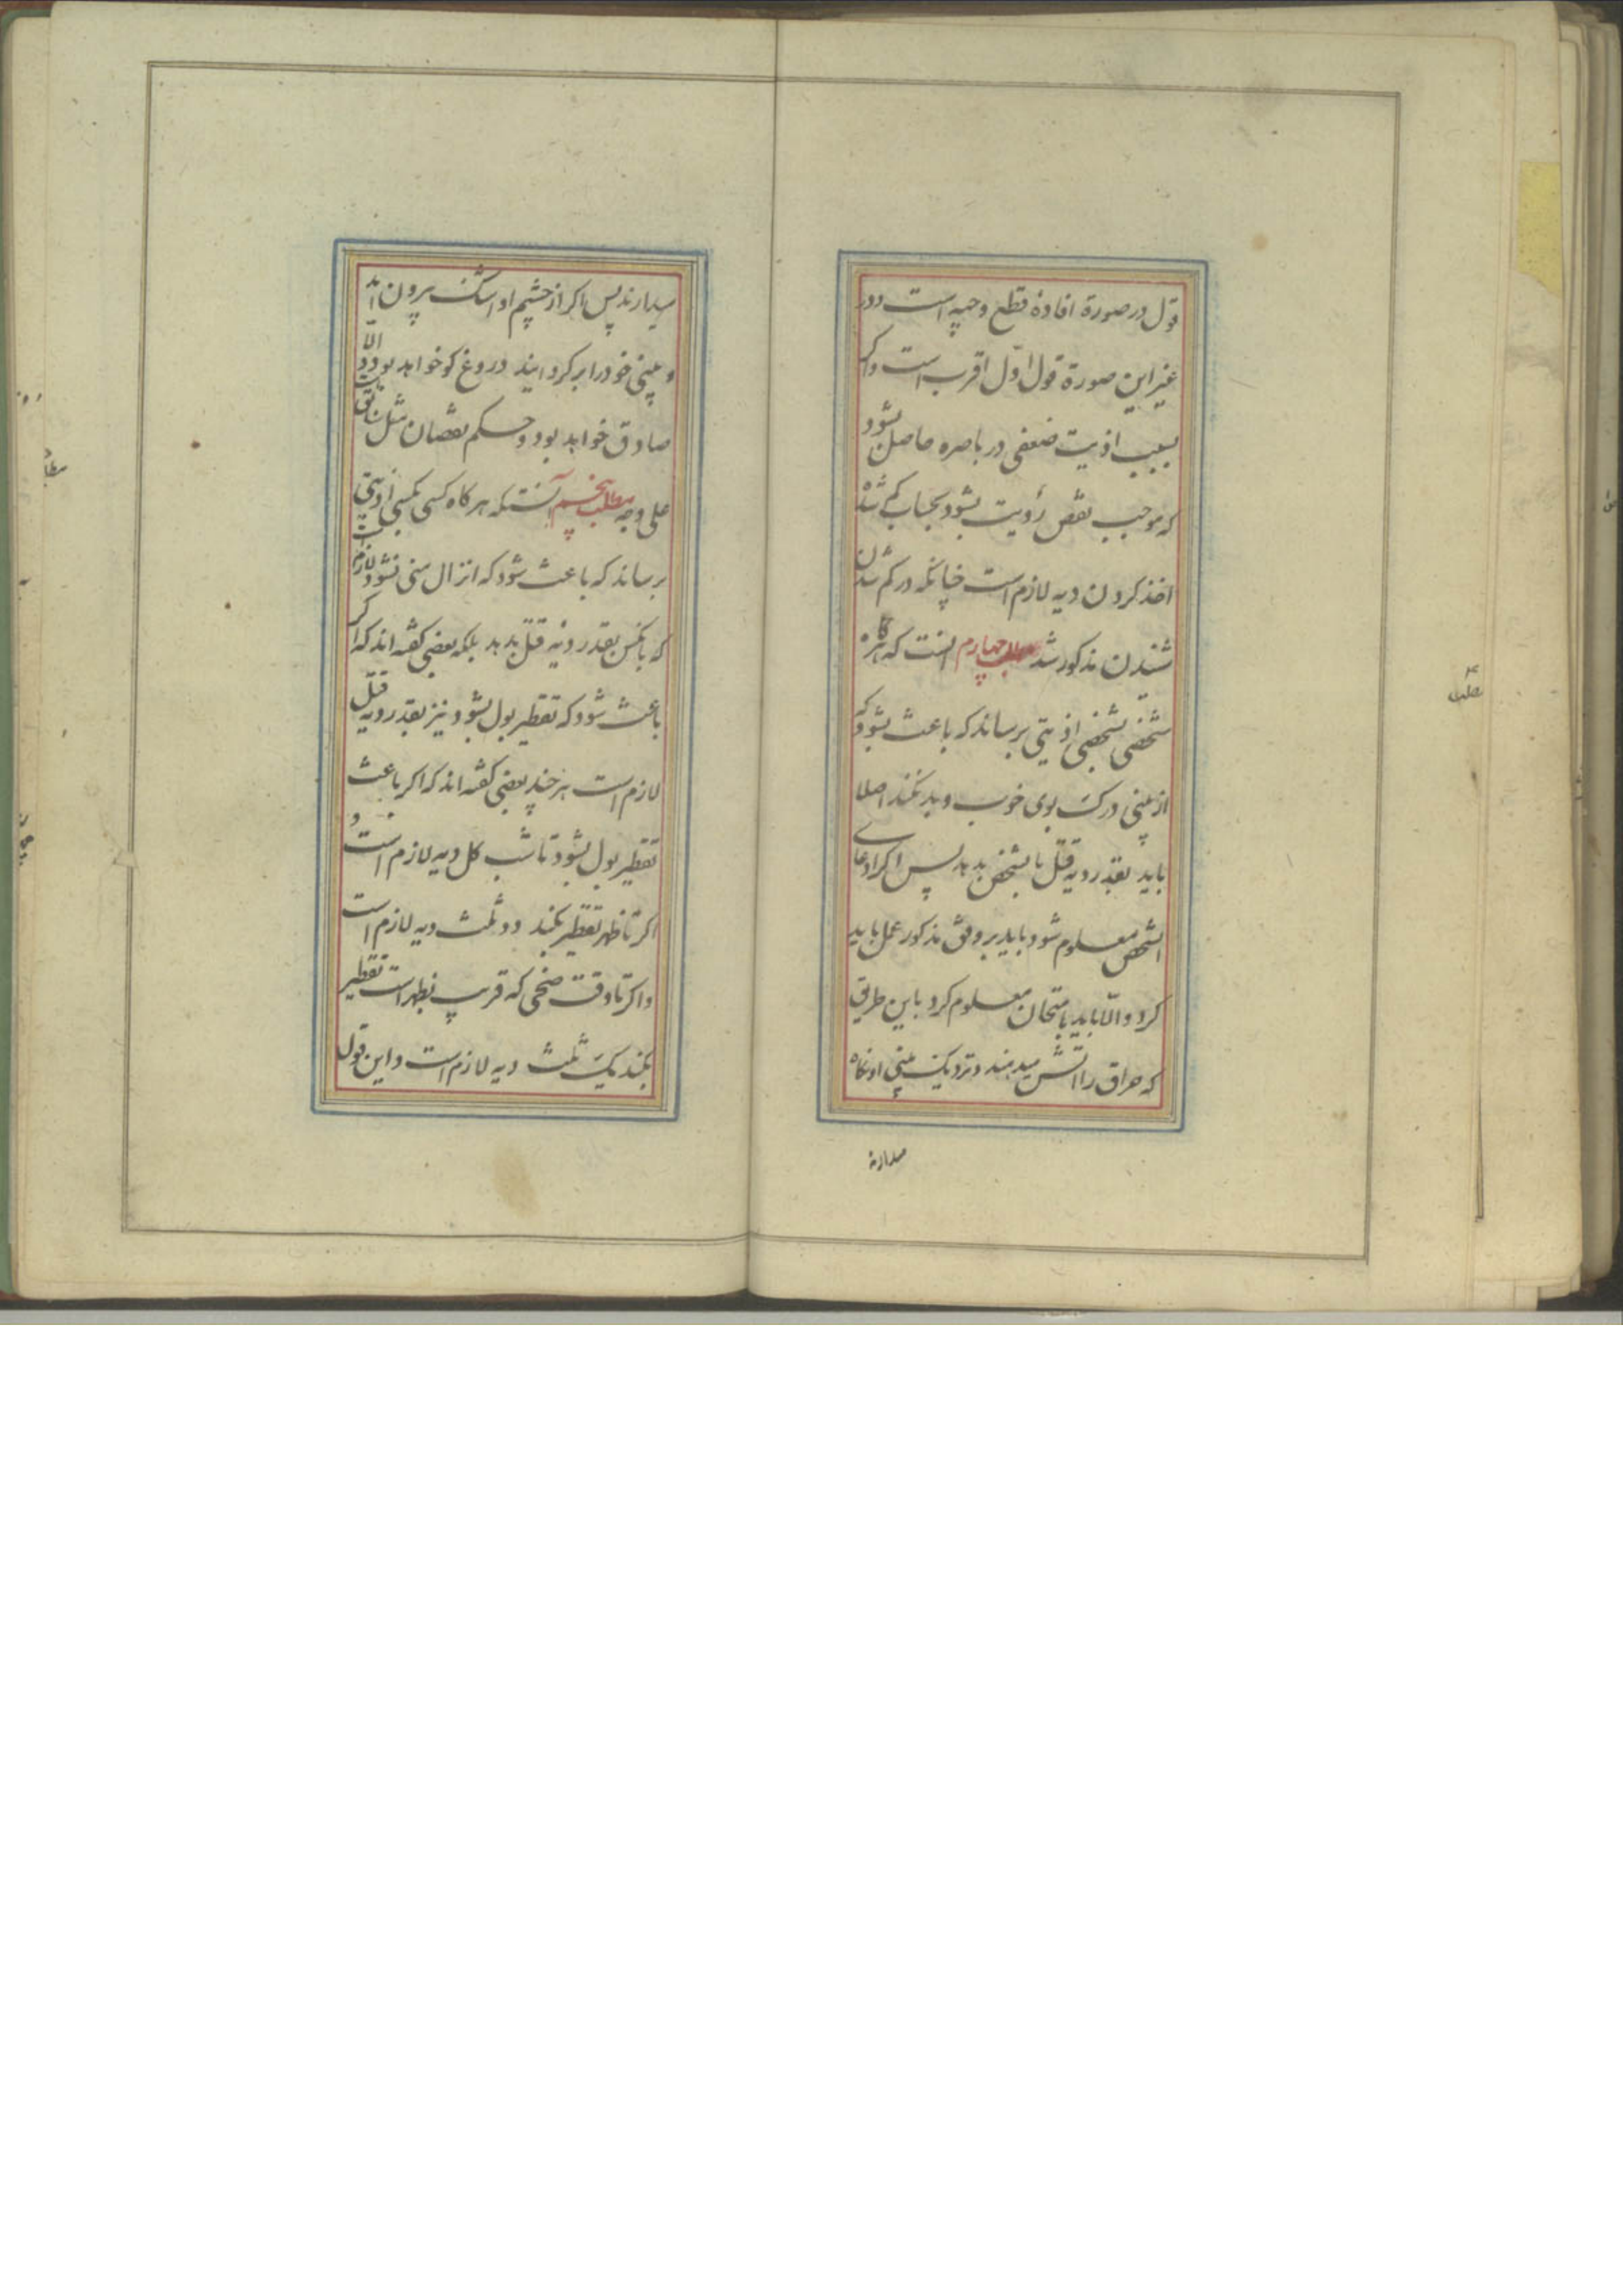 قول در صورة افادهٔ قطع وجیه است و در
غیر این صورة قول اوّل اقرب است و اکر
بسبب اذیت ضعفی در باصره حاصل بشود
که موجب نقص رؤیت بشود بحساب کم شدن
اخذ کردن دیه لازم است چنانکه در کم شدن
شنیدن مذکور شد مطلب چهارم آنست که هرکاه
شخصی بشخصی اذیتی برساند که باعث بشود که
از بینی درک بوی خوب و بد نکند اصلا
باید بقدر دیه قتل باشخص بدهد پس اکر ادعای
آنشخص معلوم شود باید بر وفق مذکور عمل باید
کرد و الّا باید بامتحان معلوم کرد باین طریق
که حراق را اتش میدهند و نزدیک بینی او نکاه
میدارند
میدارند پس اکر از چشم او اشک بیرون اید
و بینی خود را بر کرداند دروغ کو خواهد بود و الّا
صادق خواهد بود و حکم نقصان مثل سابق است
علی وجه مطلب پنجم آنستکه هر کاه کسی بکسی اذیتی
برساند که باعث شود که انزال منی نشود لازم است
که بانکس بقدر دیه قتل بدهد بلکه بعضی کفته اند که اکر
باعث شود که تقطیر بول بشود نیز بقدر دیه قتل
لازم است هر چند بعضی کفته اند که اکر باعث
تقطیر بول بشود تا شب کل دیه لازم است و
اکر تا ظهر تقطیر بکند دو ثلث دیه لازم است
و اکر تا وقت ضحی که قریب بظهر است تقطیر
بکند یک ثلث دیه لازم است و این قول
مطلب ۴